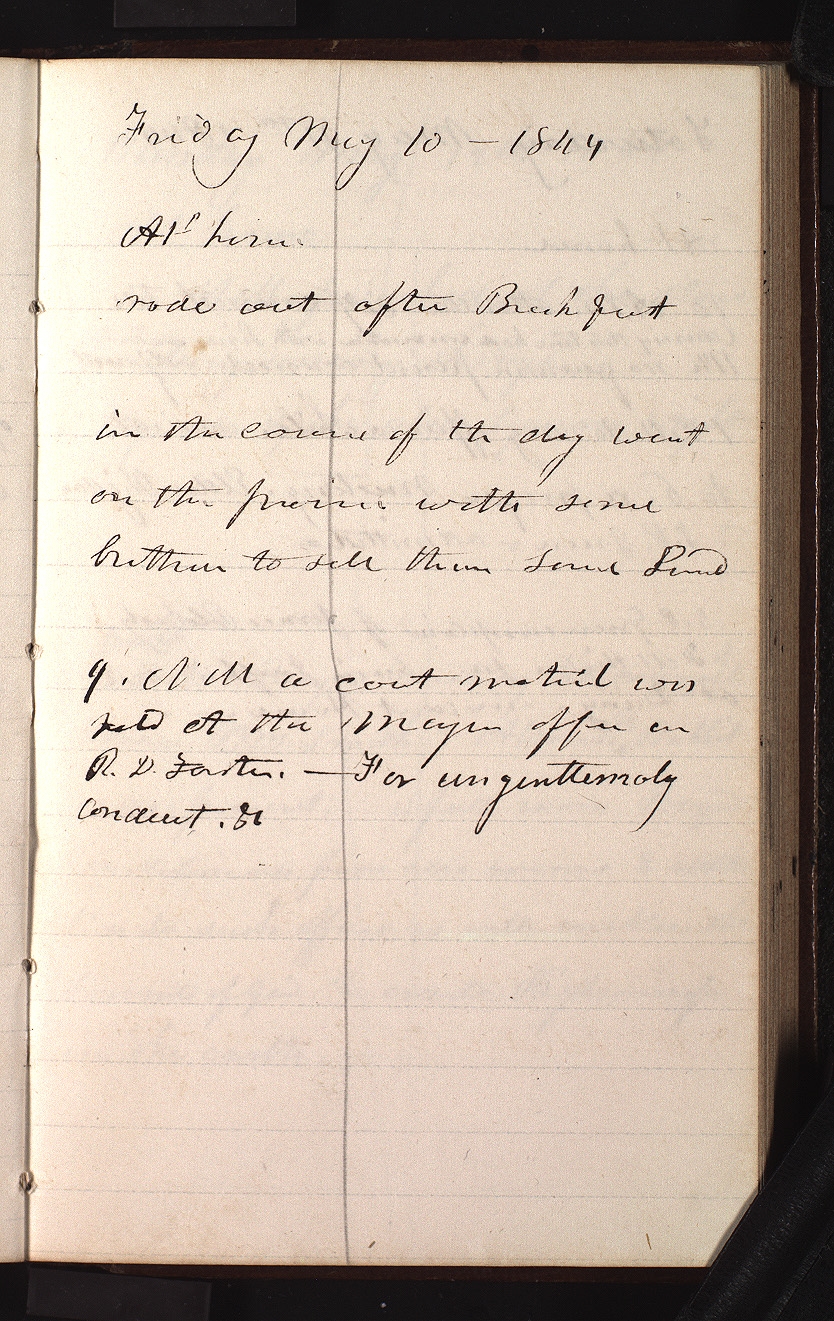 Friday May 10 – 1844
At home.
rode out after Breakfast
in the course of the day went
on the prairie with some
brethren to sell them some Land
9. A M a court martial was
held at the Mayors office on
R. D. Foster. — For ungentlemanly
conduct. &c